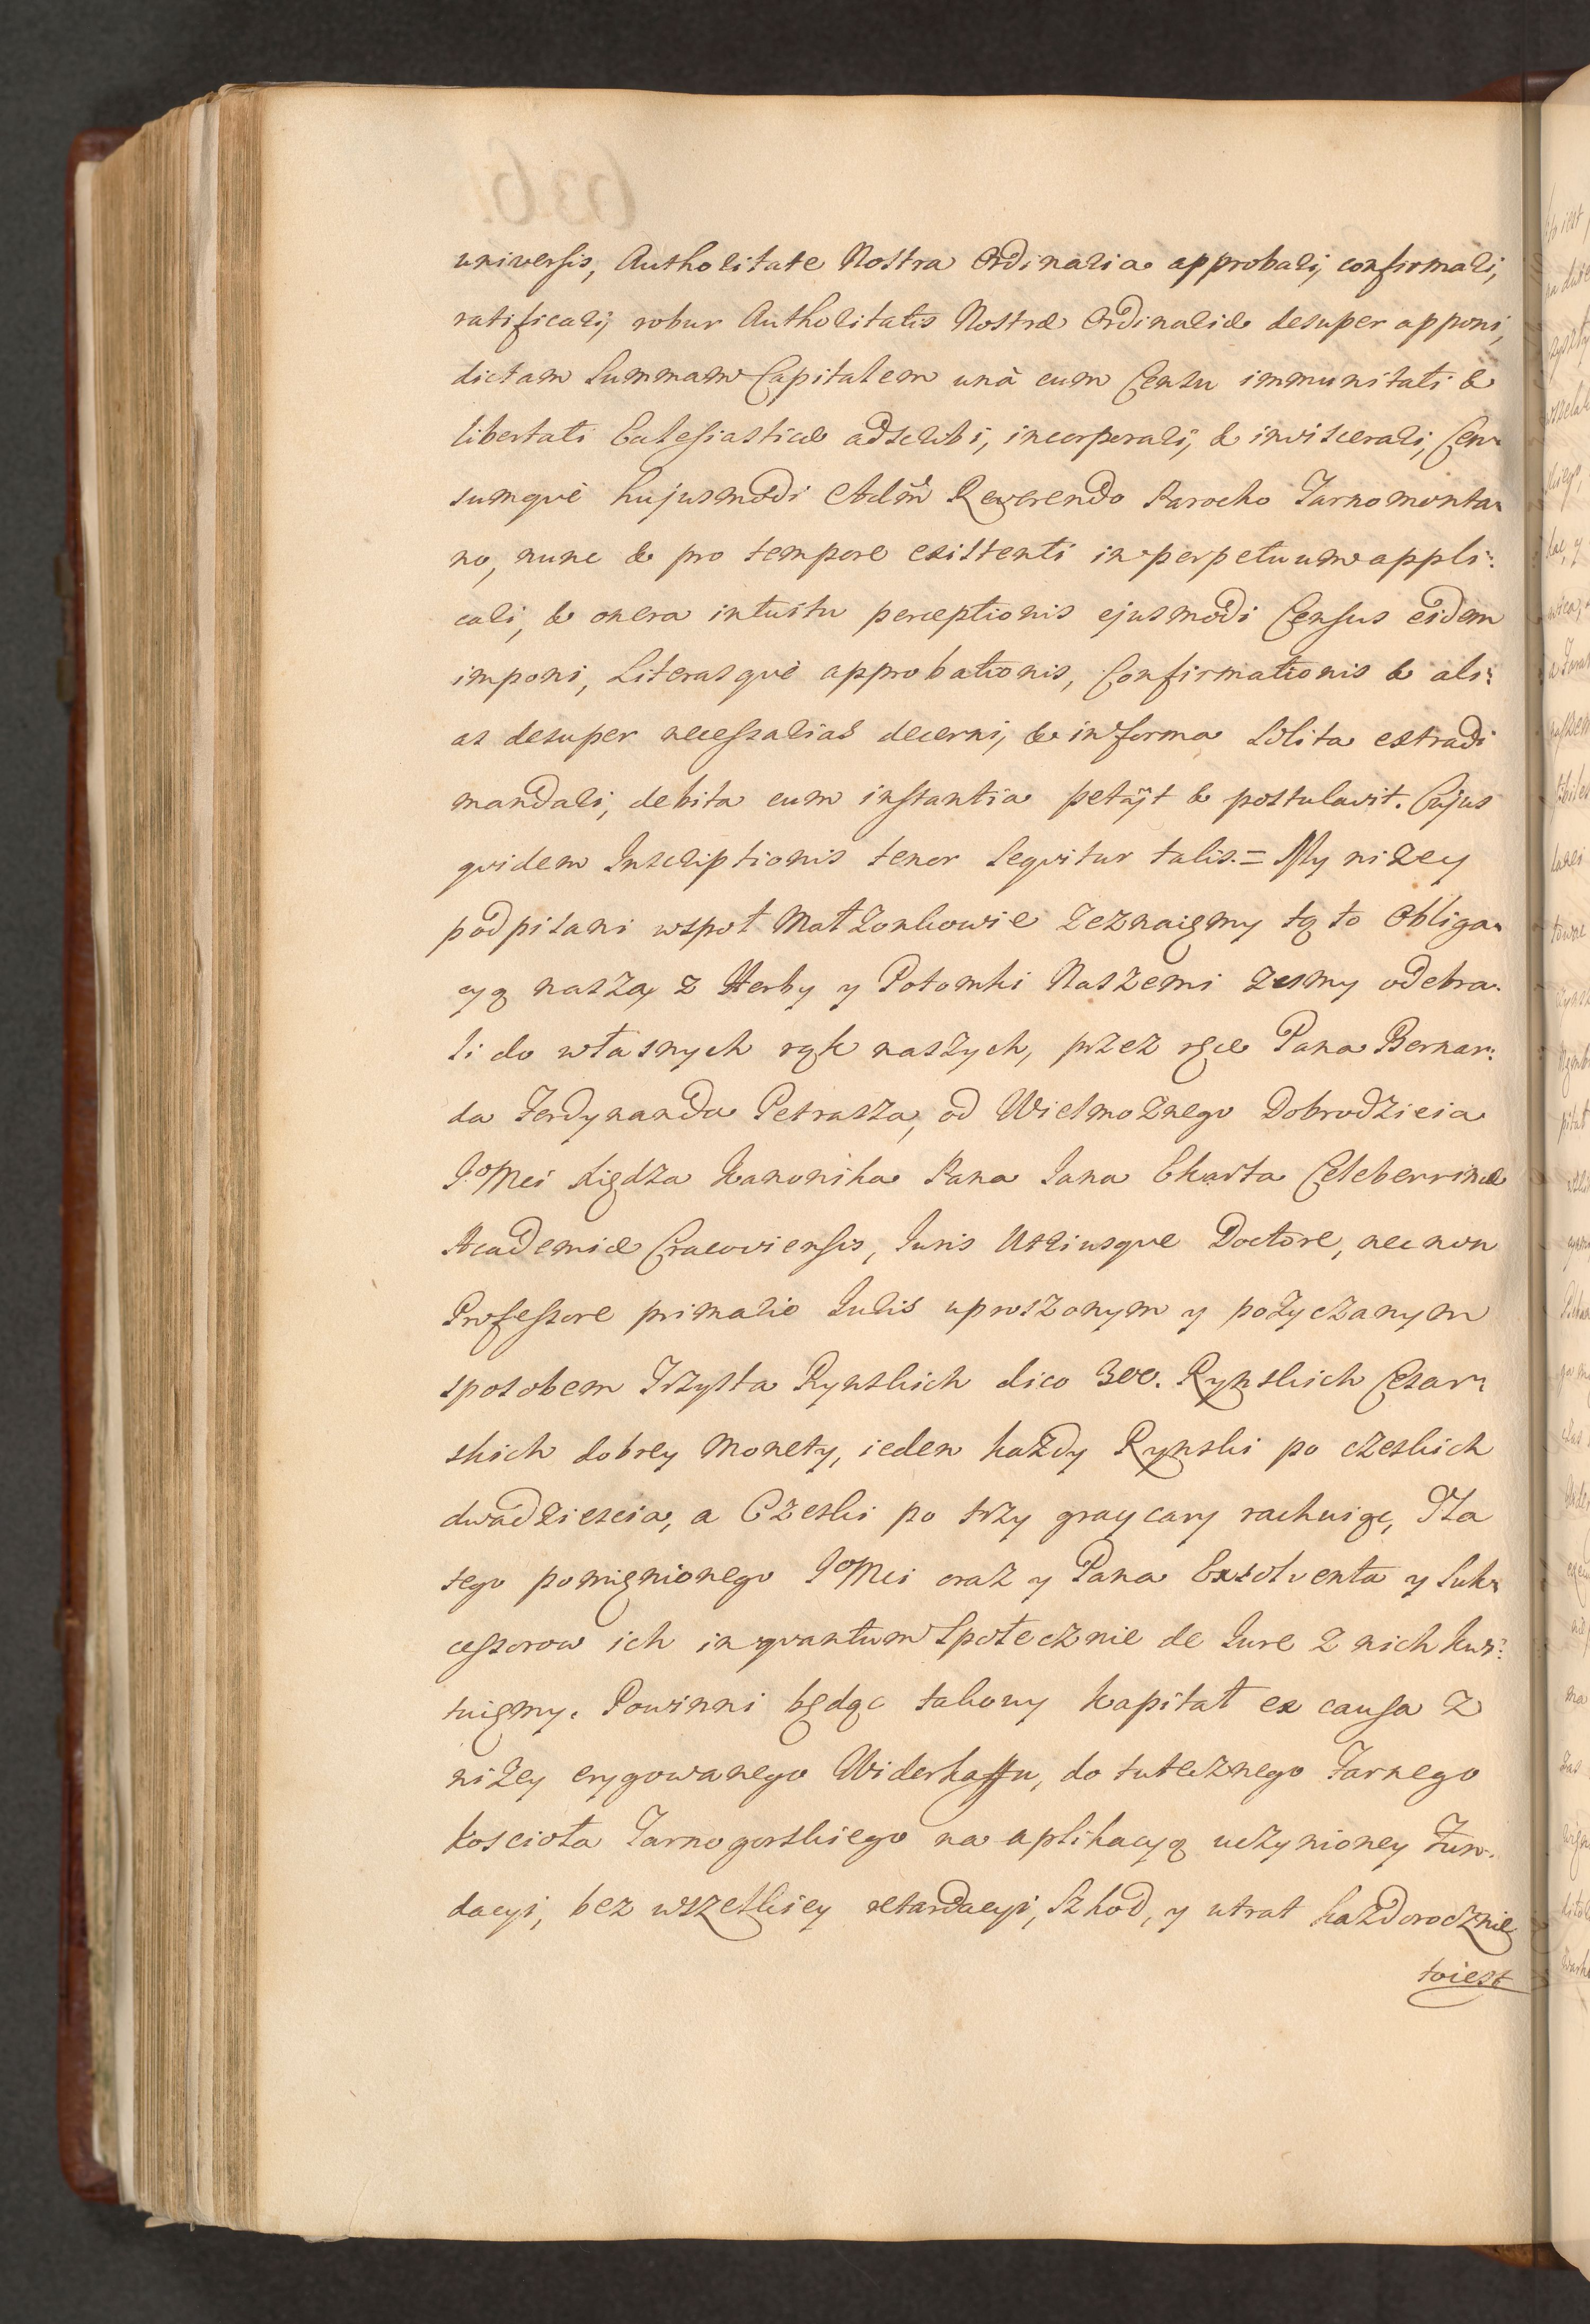 universis, Authoritate Nostra Ordinaria approbari, confirmari,
ratificari, robur Authoritatis Nostræ Ordinariæ desuper apponi,
dictam Summam Capitalem unà cum Censu immunitati &
libertati Ecclesiasticæ adscribi, incorporari, & inviscerari, Cen=
sumquè hujusmodi Adm̃ Reverendo Parocho Tarnomonta=
no, nunc & pro tempore existenti in perpetuum appli=
cari, & onera intuitu perceptionis ejusmodi Census eidem
imponi, Literasquè approbationis, Confirmationis & ali=
as desuper necessarias decerni, & in forma solita extradi
mandari, debita cum instantia petijt & postulavit. Cujus
quidem Inscriptionis tenor sequitur talis. = My nizey
podpisani wspoł Małzonkowie zeznaięmy tę to Obliga=
cyą naszą z Herby y Potomki Naszemi zesmy odebra=
li do własnych rąk naszych, przez ręce Pana Bernar=
da Ferdynanda Petrasza, od Wielmoznego Dobrodzieia
JoMci Xiędza Kanonika Pana Jana Ekarta Celeberrimæ
Academiæ Cracoviensis, Juris Utriusque Doctore, nec non
Professore primario Juris uproszonym y pozyczanym
sposobem Trzysta Rynskich dico 300. Rynskich Cesar=
skich dobrey Monety, ieden kazdy Rynski po czeskich
dwadziescia, a Czeski po trzy graycary rachuiąc, Za
tego pomięnionego JoMci oraz y Pana Exsolventa y Suk=
cessorow ich in quantum Społecznie de Jure z nich kwi=
tuięmy. Powinni będąc takowy Kapitał ex causa z
nizey erygowanego Widerkaffu, do tutecznego Farnego
Koscioła Tarnogorskiego na aplikacyą uczynioney Fun=
dacyi, bez wszelkiey retardacyi, Szkod, y utrat kazdorocznie
toiest